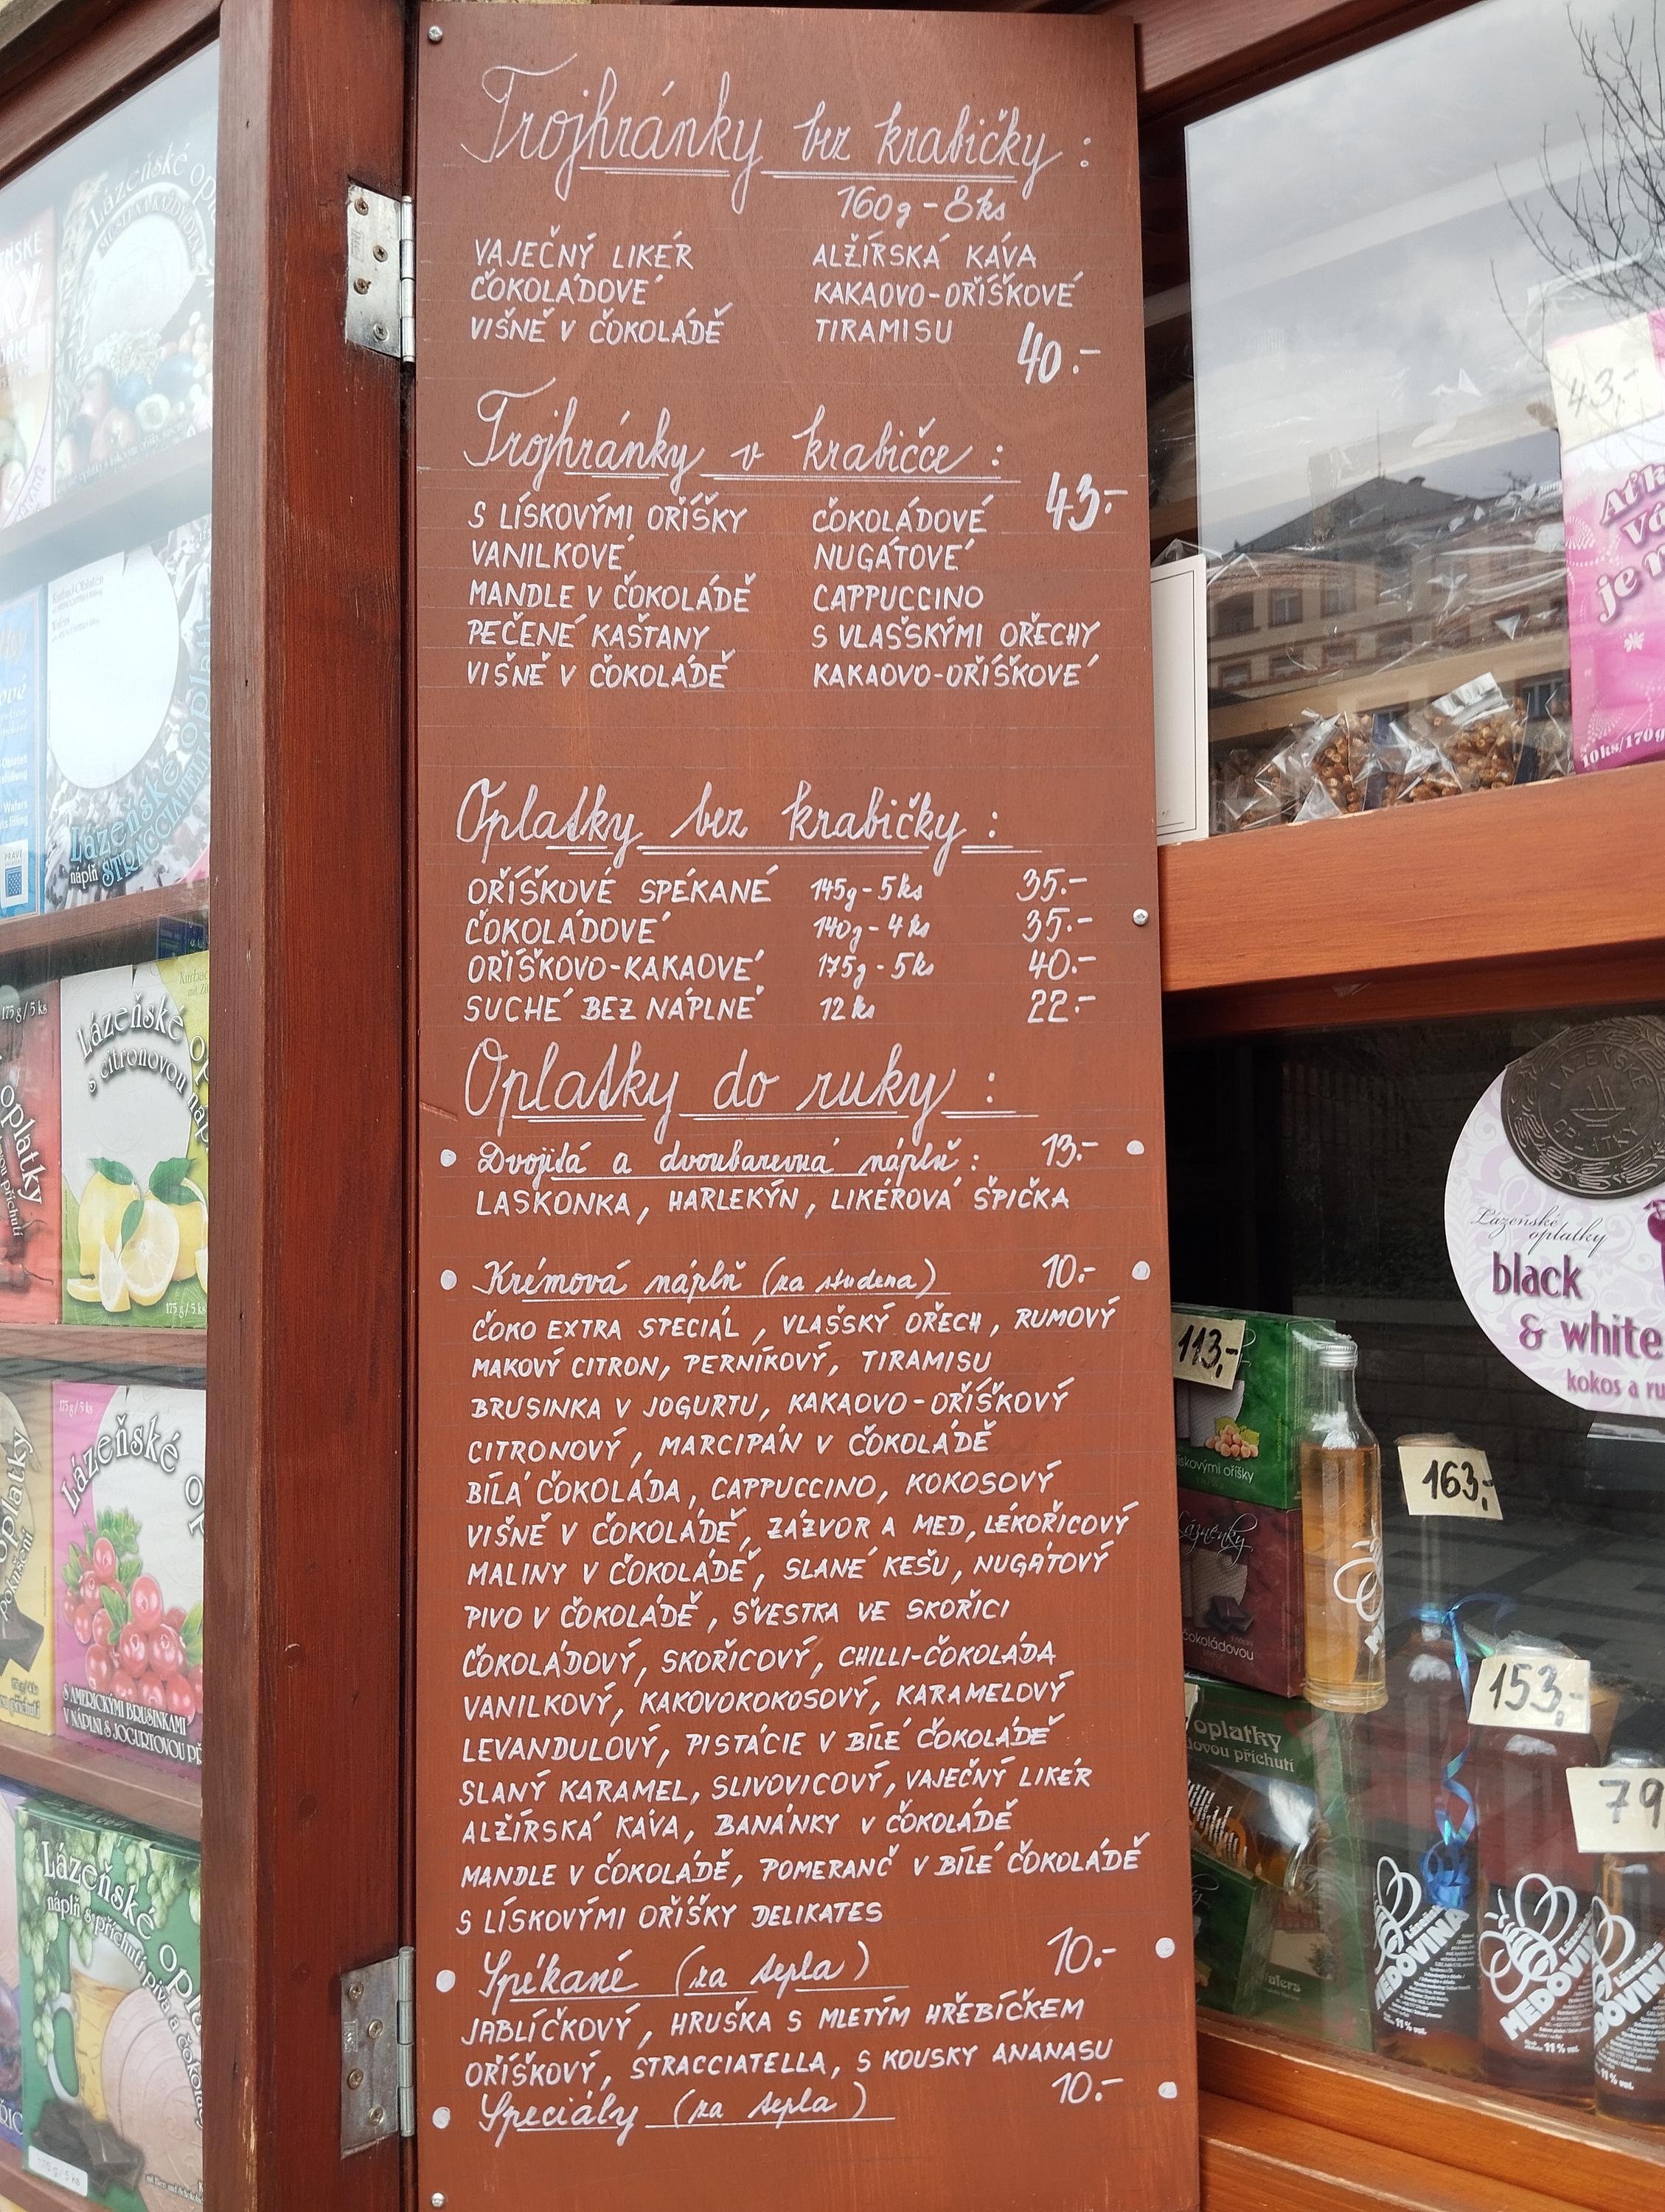 Trojhránky bez krabičky :
160g - 8ks
VAJEČNÝ LIKÉR ALŽÍRSKÁ KÁVA
ČOKOLÁDOVÉ KAKAOVO-OŘÍŠKOVÉ
VIŠNĚ V ČOKOLÁDĚ TIRAMISU
40.-
Trojhránky v krabičce :
43.-
S LÍSKOVÝMI OŘÍŠKY ČOKOLÁDOVÉ
VANILKOVÉ NUGÁTOVÉ
MANDLE V ČOKOLÁDĚ CAPPUCCINO
PEČENÉ KAŠTANY S VLAŠSKÝMI OŘECHY
VIŠNĚ V ČOKOLÁDĚ KAKAOVO-OŘÍŠKOVÉ
Oplatky bez krabičky :
OŘÍŠKOVÉ SPÉKANÉ 145g - 5ks 35.-
ČOKOLÁDOVÉ 140g - 4ks 35.-
OŘÍŠKOVO-KAKAOVÉ 175g - 5ks 40.-
SUCHÉ BEZ NÁPLNĚ 12ks 22.-
Oplatky do ruky :
Dvojitá a dvoubarevná náplň : 13.-
LASKONKA, HARLEKÝN, LIKÉROVÁ ŠPIČKA
Krémová náplň (za studena) 10.-
ČOKO EXTRA SPECIÁL, VLAŠSKÝ OŘECH, RUMOVÝ
MAKOVÝ CITRON, PERNÍKOVÝ, TIRAMISU
BRUSINKA V JOGURTU, KAKAOVO-OŘÍŠKOVÝ
CITRONOVÝ, MARCIPÁN V ČOKOLÁDĚ
BÍLÁ ČOKOLÁDA, CAPPUCCINO, KOKOSOVÝ
VIŠNĚ V ČOKOLÁDĚ, ZÁZVOR A MED, LÉKOŘICOVÝ
MALINY V ČOKOLÁDĚ, SLANÉ KEŠU, NUGÁTOVÝ
PIVO V ČOKOLÁDĚ, ŠVESTKA VE SKOŘICI
ČOKOLÁDOVÝ, SKOŘICOVÝ, CHILLI-ČOKOLÁDA
VANILKOVÝ, KAKOVOKOKOSOVÝ, KARAMELOVÝ
LEVANDULOVÝ, PISTÁCIE V BÍLÉ ČOKOLÁDĚ
SLANÝ KARAMEL, SLIVOVICOVÝ, VAJEČNÝ LIKÉR
ALŽÍRSKÁ KÁVA, BANÁNKY V ČOKOLÁDĚ
MANDLE V ČOKOLÁDĚ, POMERANČ V BÍLÉ ČOKOLÁDĚ
S LÍSKOVÝMI OŘÍŠKY DELIKATES
Spékané (za tepla) 10.-
JABLÍČKOVÝ, HRUŠKA S MLETÝM HŘEBÍČKEM
OŘÍŠKOVÝ, STRACCIATELLA, S KOUSKY ANANASU
Speciály (za tepla) 10.-
Lázeňské
náplň STRACCIATELLA
175 g / 5 ks
Lázeňské
s citronovou
175 g / 5 ks
oplatky
175g / 5 ks
Lázeňské
S AMERICKÝMI BRUSINKAMI
V NÁPLNI S JOGURTOVOU
oplatky
Lázeňské
náplň s příchutí piva a
175 g / 5 ks
43,-
je
10ks/170g
LÁZEŇSKÉ
OPLATKY
Lázeňské
oplatky
black
& white
kokos a
113,-
oříšky
163,-
čokoládovou
153,-
oplatky
příchutí
79
MEDOVINA
11% vol.
MEDOVINA
11% vol.
11% vol.